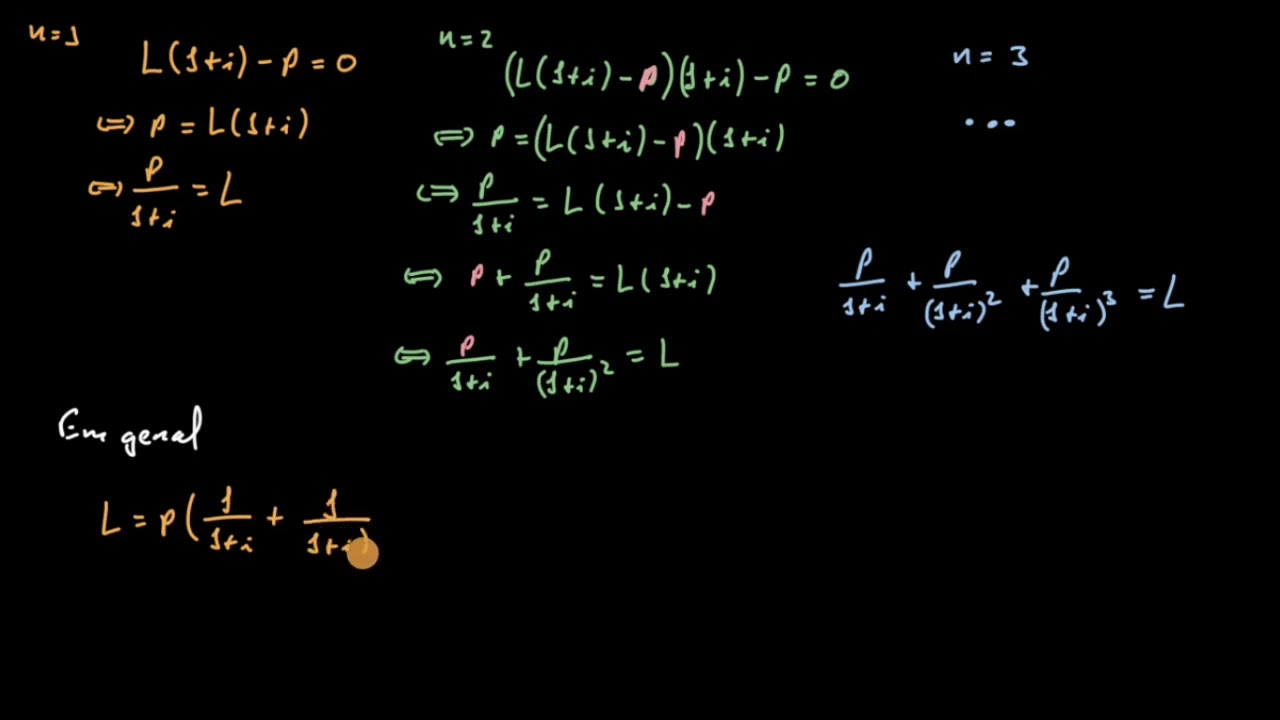 n=1
L(1+i) - p = 0
⇔ p = L(1+i)
⇔ p/(1+i) = L
n=2
(L(1+i) - p)(1+i) - p = 0
⇔ p = (L(1+i) - p)(1+i)
⇔ p/(1+i) = L(1+i) - p
⇔ p + p/(1+i) = L(1+i)
⇔ p/(1+i) + p/(1+i)² = L
n = 3
...
p/(1+i) + p/(1+i)² + p/(1+i)³ = L
Em geral
L = p(1/(1+i) + 1/(1+i)